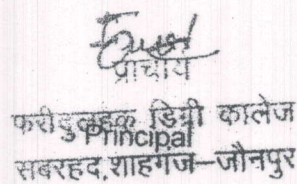 प्राचार्य
फरीदुलहक डिग्री कालेज
Principal
सबरहद, शाहगंज–जौनपुर